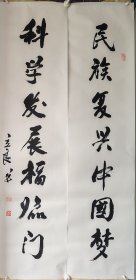 民族复兴中国梦
科学发展福临门